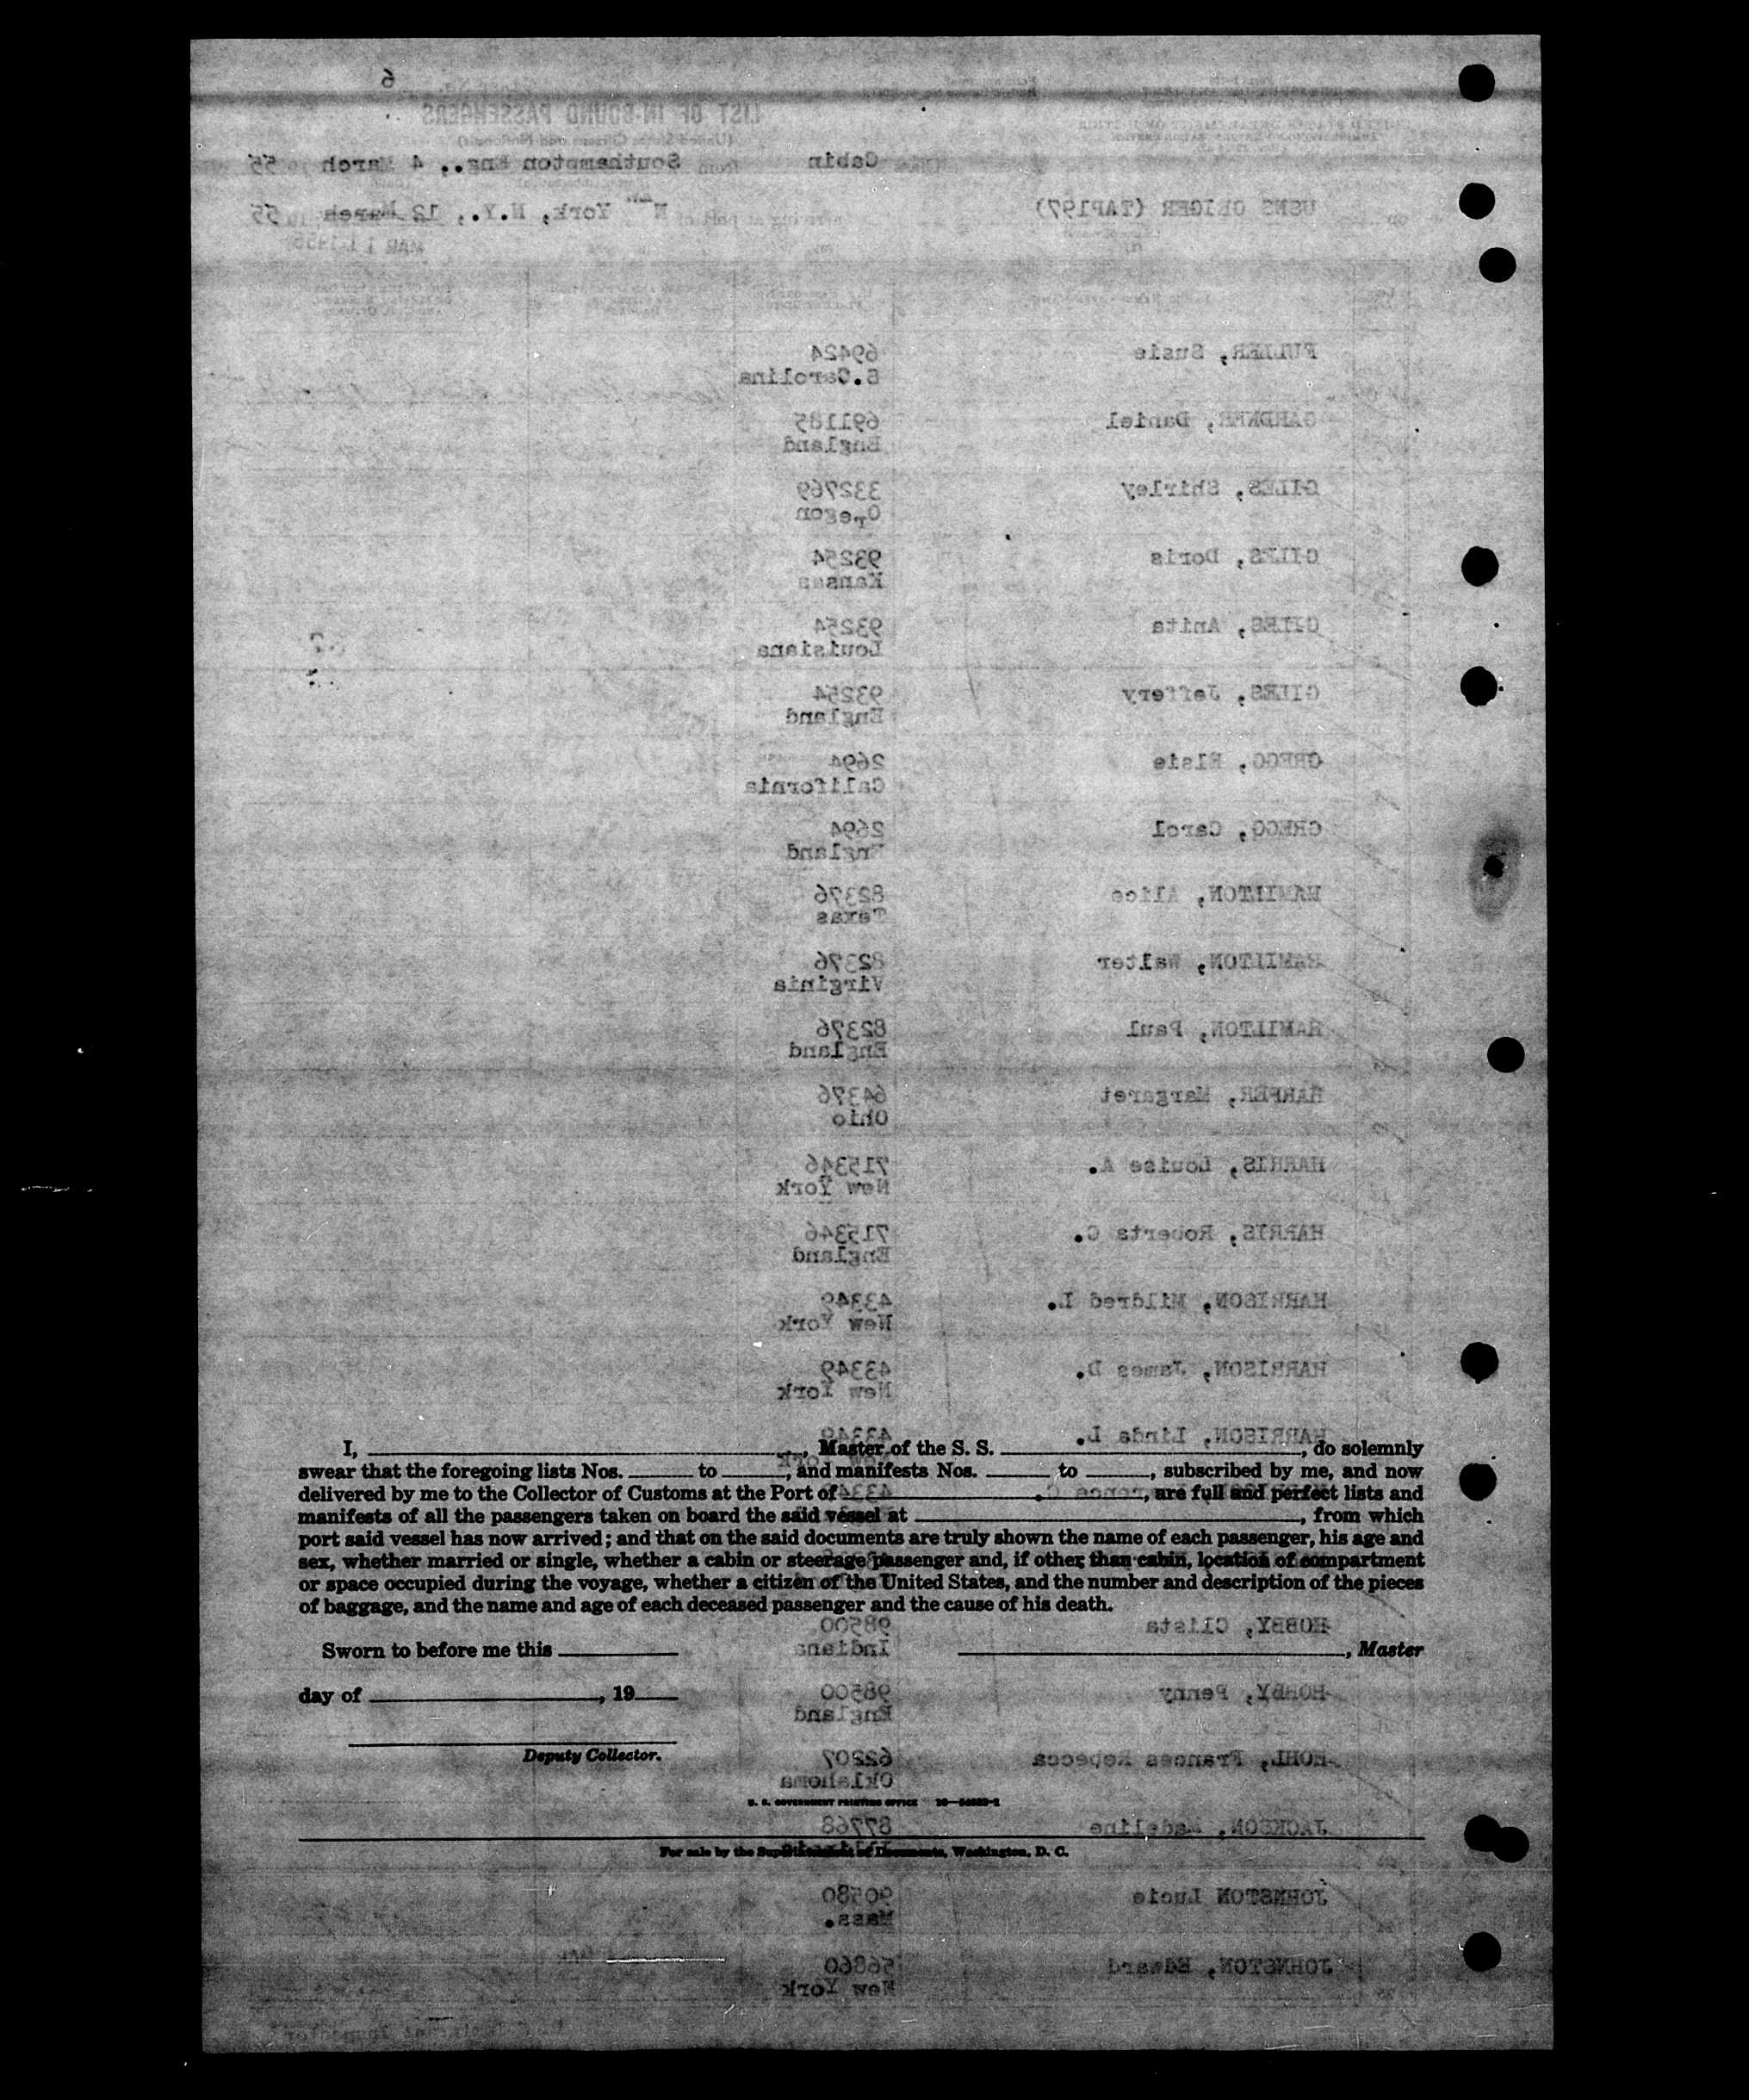 6
LIST OF IN-BOUND PASSENGERS
(United States Citizens and Nationals)
Cabin from Southampton Eng., 4 March 55
USNS GEIGER (TAP197) arriving at port of New York, N.Y., 12 March 55
MAR 11 1955
FULLER, Susie 69424
S.Carolina
GARDNER, Daniel 691185
England
GILES, Shirley 332769
Oregon
GILES, Doris 93254
Kansas
GILES, Anita 93254
Louisiana
GILES, Jeffery 93254
England
GREGG, Elsie 2694
California
GREGG, Carol 2694
England
HAMILTON, Alice 82376
Texas
HAMILTON, Walter 82376
Virginia
HAMILTON, Paul 82376
England
HARPER, Margaret 64376
Ohio
HARRIS, Louise A. 715346
New York
HARRIS, Roberta C. 715346
England
HARRISON, Mildred L. 43349
New York
HARRISON, James D. 43349
New York
HARRISON, Linda L. 43349
I, , Master of the S. S. , do solemnly
swear that the foregoing lists Nos. to , and manifests Nos. to , subscribed by me, and now
delivered by me to the Collector of Customs at the Port of , are full and perfect lists and
manifests of all the passengers taken on board the said vessel at , from which
port said vessel has now arrived; and that on the said documents are truly shown the name of each passenger, his age and
sex, whether married or single, whether a cabin or steerage passenger and, if other than cabin, location of compartment
or space occupied during the voyage, whether a citizen of the United States, and the number and description of the pieces
of baggage, and the name and age of each deceased passenger and the cause of his death.
HOBBY, Clista 98500
Indiana
Sworn to before me this , Master
day of , 19
HOBBY, Penny 98500
England
Deputy Collector.
HOHL, Frances Rebecca 62207
Oklahoma
U. S. GOVERNMENT PRINTING OFFICE
JACKSON, Madeline 87768
For sale by the Superintendent of Documents, Washington, D. C.
JOHNSTON Lucie 90580
Mass.
JOHNSTON, Edward 56860
New York